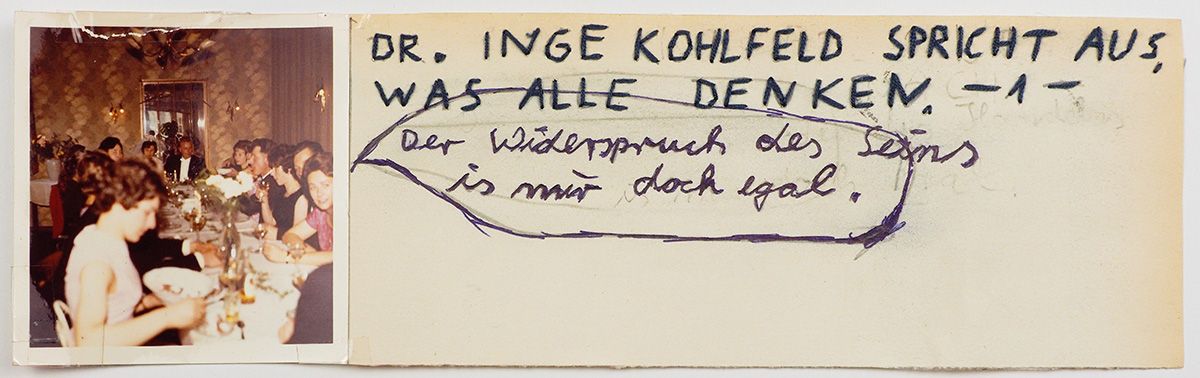 DR. INGE KOHLFELD SPRICHT AUS,
WAS ALLE DENKEN. -1-
Der Widerspruch des Seins
is mir doch egal.